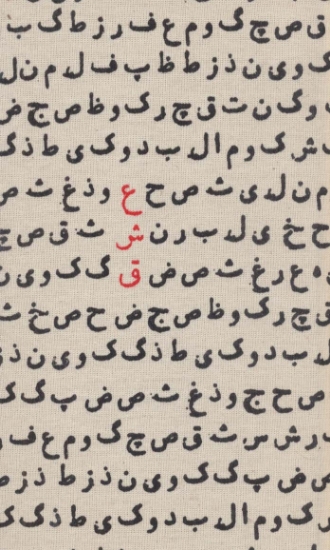 ق ص چ گ و م ع ف ر ز ط گ ب
ک و ی ن ذ ز ط ظ پ ف ل م ن ل
و گ ن ت ق چ ر ک و ظ ص ج ض
ش ک و م ا ل ب د و ک ی ط ذ گ
م ن ل د ی ث ص ح ع و ذ غ ث ص
ح خ ی ل د ب ر ن ش ث ق ص چ
ه ع ر غ ث ص ض ق گ ک و ی ن
ق چ ر ک و ظ ص ج ض ح ص خ ث
ل ب د و ک ی ط ذ گ ک و ی ن ذ ز
ص ح ج و ذ غ ث ص ض پ گ ک
ر ش س ث ق ص چ گ و م ع ف ر
ص ض پ گ ک و ی ن ذ ز ط ذ ز ص
ر ک و م ا ل ب د و ک ی ط ذ گ ک